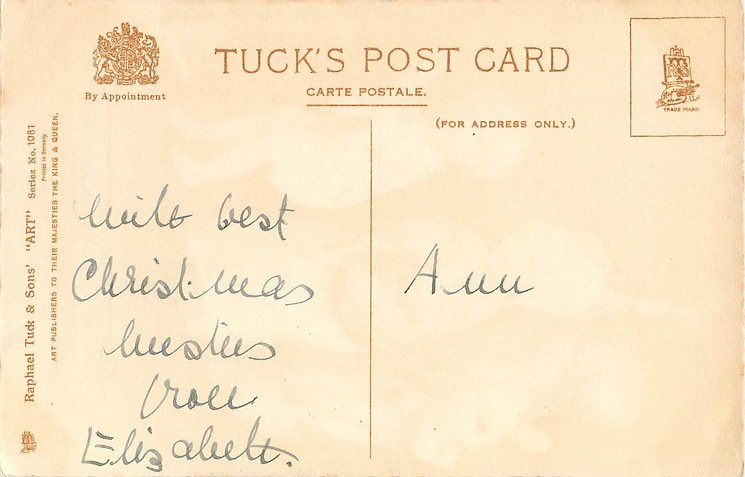 TUCK'S POST CARD
CARTE POSTALE.
By Appointment
(FOR ADDRESS ONLY.)
TRADE MARK
Raphael Tuck & Sons' "ART" Series No. 1081
Printed in Germany
ART PUBLISHERS TO THEIR MAJESTIES THE KING & QUEEN.
With best
Christmas
wishes
from
Elizabeth.
Ann